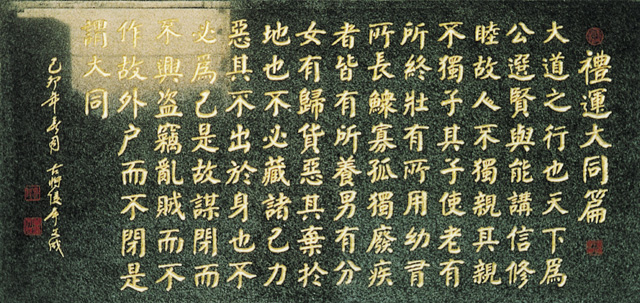 禮運大同篇
大道之行也天下爲
公選賢與能講信修
睦故人不獨親其親
不獨子其子使老有
所終壯有所用幼有
所長鰥寡孤獨廢疾
者皆有所養男有分
女有歸貨惡其棄於
地也不必藏諸己力
惡其不出於身也不
必爲己是故謀閉而
不興盗竊亂賊而不
作故外户而不閉是
謂大同
卯年